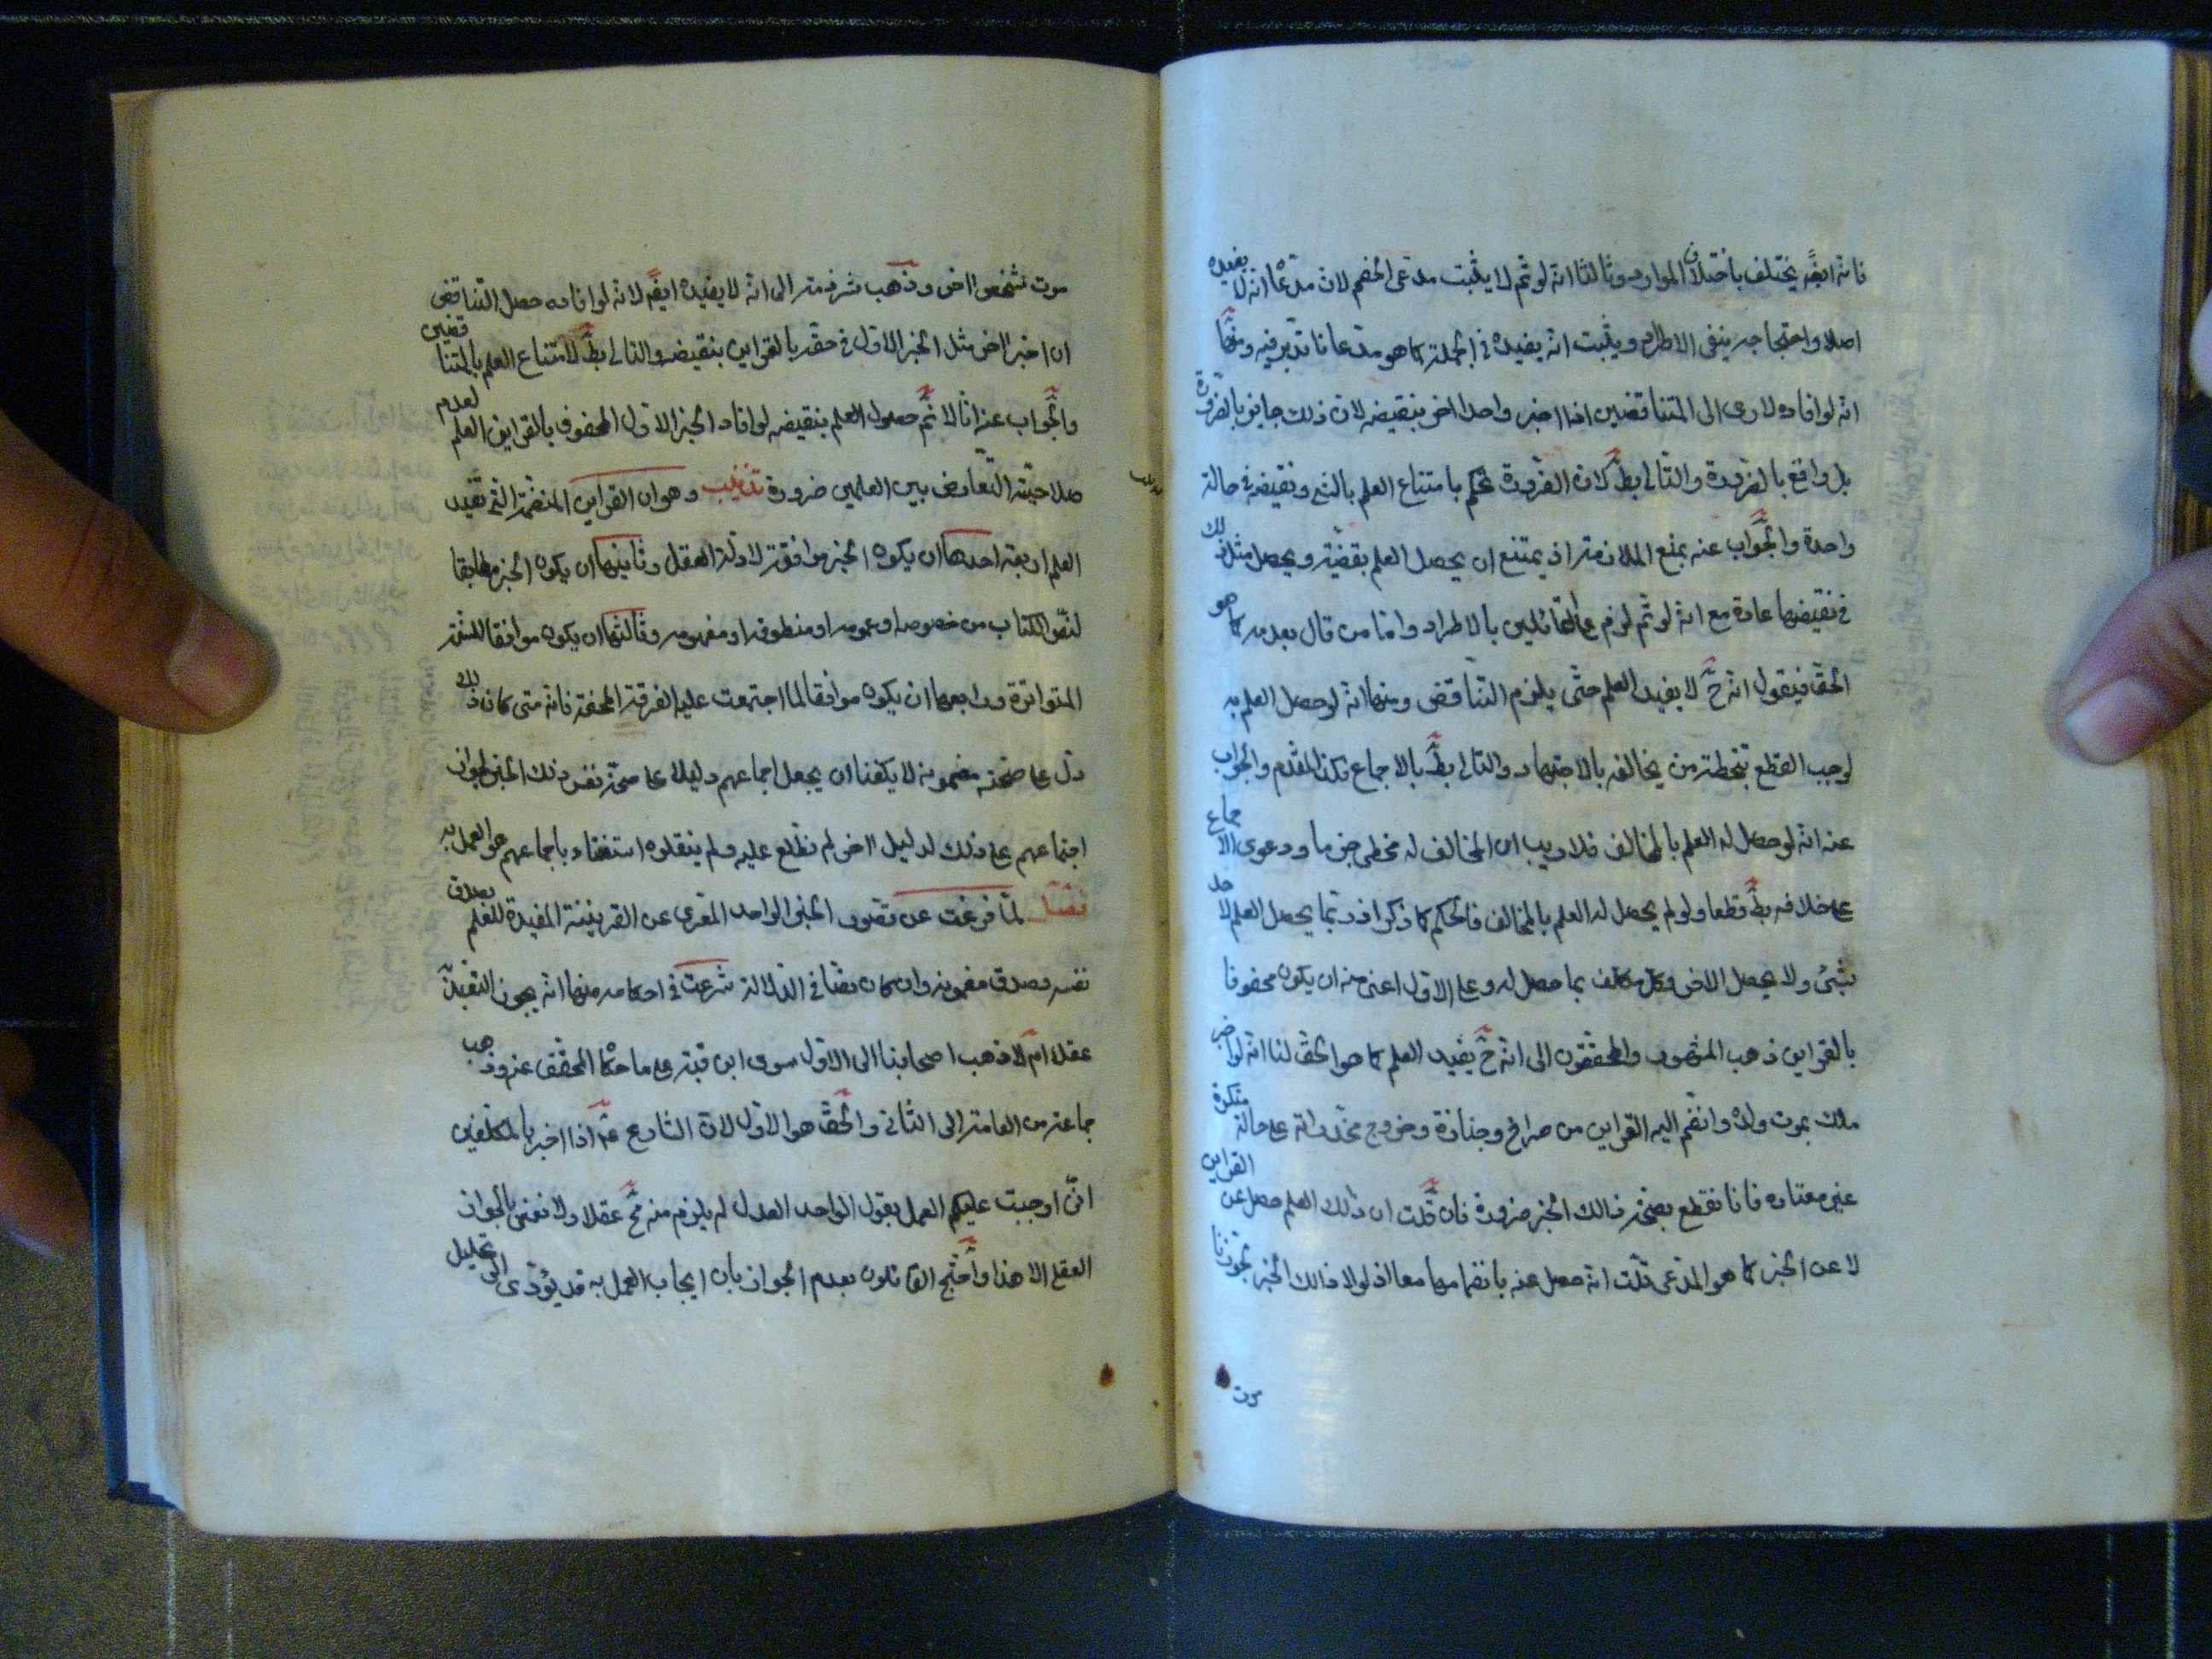 فانه ايضًا يختلف باختلاف الموارد وثالثا انه لو تم لا يثبت مدعى الخصم لان مدعاه انه لا يفيده
اصلا واحتجاجه ينفى الاطراد ويثبت انه يفيده في الجملة كما هو مدعانا تدبر فيه ومنها
انه لو افاده لادى الى المتناقضين اذا اخبر واحد اخر بنقيضه لان ذلك جايز بالضرورة
بل واقع بالضرورة والتالى بط لان الضرورة تحكم بامتناع العلم بالشئ ونقيضه في حالة
واحدة والجواب عنه بمنع الملازمة اذ يمتنع ان يحصل العلم بقضية ويحصل مثل ذلك
في نقيضها عادة مع انه لو تم لزم على القائلين بالاطراد واما من قال بعدمه كما هو
الحق فيقول انه ح لا يفيد العلم حتى يلزم التناقض ومنها انه لو حصل العلم به
لوجب القطع بتخطئة من يخالفه بالاجتهاد والتالى بط بالاجماع فكذا المقدم والجواب
عنه انه لو حصل له العلم بالمخالف فلا ريب ان المخالف له مخطى جزما ودعوى الاجماع
على خلافه بط قطعا ولو لم يحصل له العلم بالمخالف فالحكم كما ذكر اذ ربما يحصل العلم لاحد
بشئ ولا يحصل لاخر وكل مكلف بما حصل له وعلى الاول اعنى منه ان يكون محفوفا
بالقراين ذهب المشهور والمحققون الى انه ح يفيد العلم كما هو الحق لنا انه لو اخبر
ملك بموت ولده وانضم اليه القراين من صراخ وجنازة وخروج مخدراته على حالة منكرة
غير معتاده فانا نقطع بصحة ذالك الخبر ضرورة فان قلت ان ذلك العلم حصل عن القراين
لا عن الخبر كما هو المدعى قلت انه حصل عنه بانضمامها معا اذ لولا ذالك الخبر لجوزنا
موت
موت شخص اخر وذهب شرذمة الى انه لا يفيده ايضًا لانه لو افاده حصل التناقض
ان اخبر اخر مثل الخبر الاول في حقه بالقراين بنقيضه والتالى بط لامتناع العلم بالمتناقضين
والجواب عنه انا لا نم حصول العلم بنقيضه لو افاد الخبر الاول المحفوف بالقراين العلم لعدم
صلاحيته التعارض بين العلمين ضرورة تذنيب وهو ان القراين المنضمة التى تفيد
العلم اربعة احدها ان يكون الخبر موافقة لادلة العقل وثانيها ان يكون الخبر مطابقا
لنص الكتاب من خصوصه او عمومه او منطوقه او مفهومه وثالثها ان يكون موافقا للسنة
المتواترة ورابعها ان يكون موافقا لما اجتمعت عليه الفرقة المحقة فانه متى كان ذلك
دل على صحة مضمونه لا يكفنا ان يجعل اجماعهم دليلا على صحة نفس ذلك الخبر لجواز
اجتماعهم على ذلك لدليل اخر لم نطلع عليه ولم ينقلوه استغناء باجماعهم على العمل به
فصل لما فرغت عن تصور الخبر الواحد المعرى عن القرينة المفيدة للعلم بصدق
نفسه وصدق مضمونه وان كان نصا في الدلالة شرعت في احكامه منها انه يجوز التعبد
عقلا ام لا ذهب اصحابنا الى الاول سوى ابن قبة على ما حكاه المحقق عنه وذهب
جماعة من العامة الى الثانى والحق هو الاول لان الشارع عم اذا اخبر بالمكلفين
انى اوجبت عليكم العمل بقول الواحد العدل لم يلزم منه مح عقلا ولا نعنى بالجواز
العقلى الا هذا واحتج القائلون بعدم الجواز بان ايجاب العمل به قد يؤدى الى تحليل